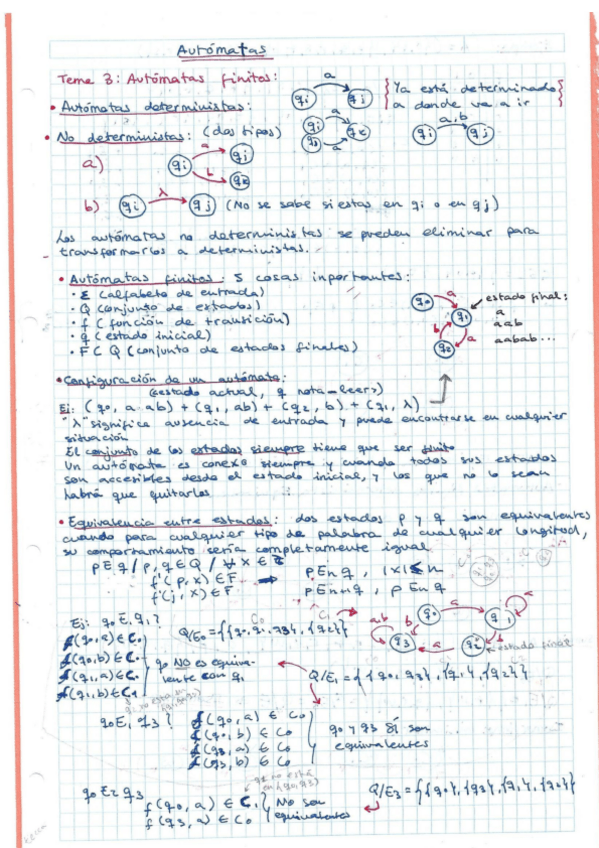 Autómatas
Tema 3: Autómatas finitos:
• Autómatas deterministas:
qi a qj
qi a qk
qj a
Ya está determinado
a donde va a ir
qi a,b qj
• No deterministas: (dos tipos)
a) qi a qj
b qk
b) qi λ qj (No se sabe si estas en qi o en qj)
Los autómatas no deterministas se pueden eliminar para
transformarlos a deterministas.
• Autómatas finitos: 5 cosas inportantes:
· Σ (alfabeto de entrada)
· Q (conjunto de estados)
· f (función de transición)
· q (estado inicial)
· F C Q (conjunto de estados finales)
q0 a q1 b a q2
estado final:
a
aab
aabab...
• Configuración de un autómata:
(estado actual, q nota-leer>)
Ej: (q0, a ab) + (q1, ab) + (q2, b) + (q1, λ)
"λ" significa ausencia de entrada y puede encontrarse en cualquier
situación
El conjunto de los estados siempre tiene que ser finito
Un autómata es conexo siempre y cuando todos sus estados
son accesibles desde el estado inicial, y los que no lo sean
habrá que quitarlos
• Equivalencia entre estados: dos estados p y q son equivalentes
cuando para cualquier tipo de palabra de cualquier longitud,
su comportamiento sería completamente igual
pEq / p, q ∈ Q / ∀ x ∈ Σ
f'(p, x) ∈ F
f'(j, x) ∈ F
p En q, |x| ≤ n
p En+1 q, p En q
Ej: q0 E1 q1?
f(q0,a) ∈ C1
f(q0,b) ∈ C0
f(q1,a) ∈ C0
f(q1,b) ∈ C1
q0 NO es equiva-
lente con q1
C0 C1
Q/E0 = {{q0,q1,q3},{q2}}
a,b q0 a q1 a
q3 a q2 b
estado final
Q/E1 = {{q0,q3},{q1},{q2}}
q0 E1 q3?
f(q0,a) ∈ C0
f(q0,b) ∈ C0
f(q3,a) ∈ C0
f(q3,b) ∈ C0
q0 y q3 SÍ son
equivalentes
q1 no está
en {q0,q3}
q0 E2 q3
f(q0,a) ∈ C1
f(q3,a) ∈ C0
No son
equivalentes
Q/E3 = {{q0},{q3},{q1},{q2}}